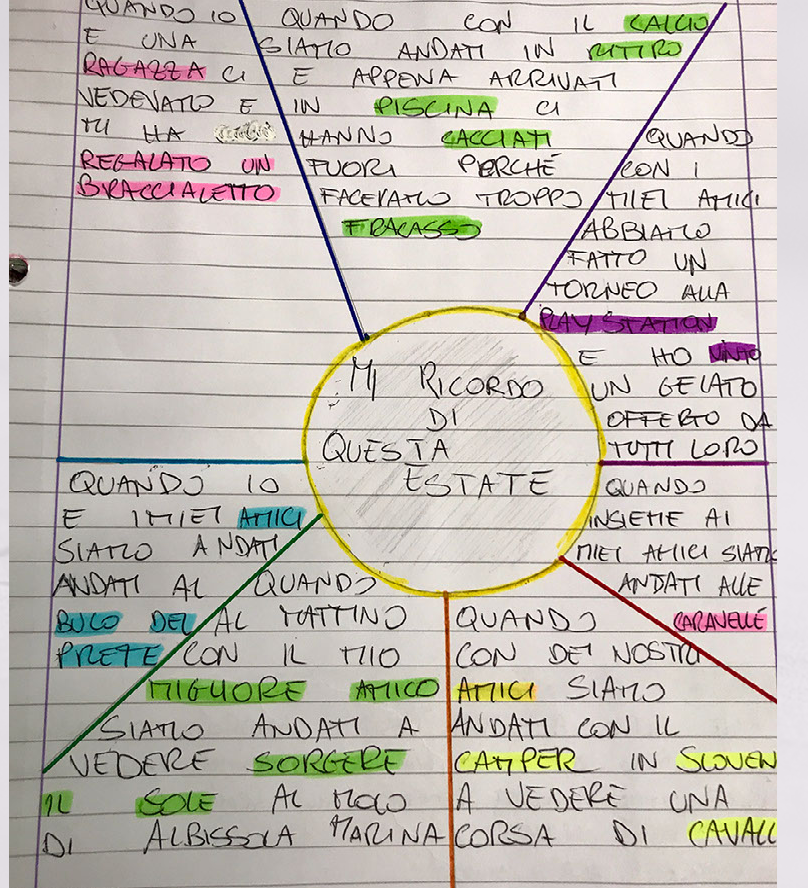 QUANDO IO
E UNA
RAGAZZA CI
VEDEVAMO E
MI HA
REGALATO UN
BRACCIALETTO
QUANDO CON IL CALCIO
SIAMO ANDATI IN RITIRO
E APPENA ARRIVATI
IN PISCINA CI
HANNO CACCIATI
FUORI PERCHÉ
FACEVAMO TROPPO
FRACASSO
QUANDO
CON I
MIEI AMICI
ABBIAMO
FATTO UN
TORNEO ALLA
PLAY STATION
E HO VINTO
UN GELATO
OFFERTO DA
TUTTI LORO
MI RICORDO
DI
QUESTA
ESTATE
QUANDO IO
E I MIEI AMICI
SIAMO ANDATI
ANDATI AL
BUCO DEL
PRETE
QUANDO
AL MATTINO
CON IL MIO
MIGLIORE AMICO
SIAMO ANDATI A
VEDERE SORGERE
IL SOLE AL MOLO
DI ALBISSOLA MARINA
QUANDO
CON DEI NOSTRI
AMICI SIAMO
ANDATI CON IL
CAMPER IN SLOVEN
A VEDERE UNA
CORSA DI CAVALL
QUANDO
INSIEME AI
MIEI AMICI SIAM
ANDATI ALLE
CARAVELLÉ